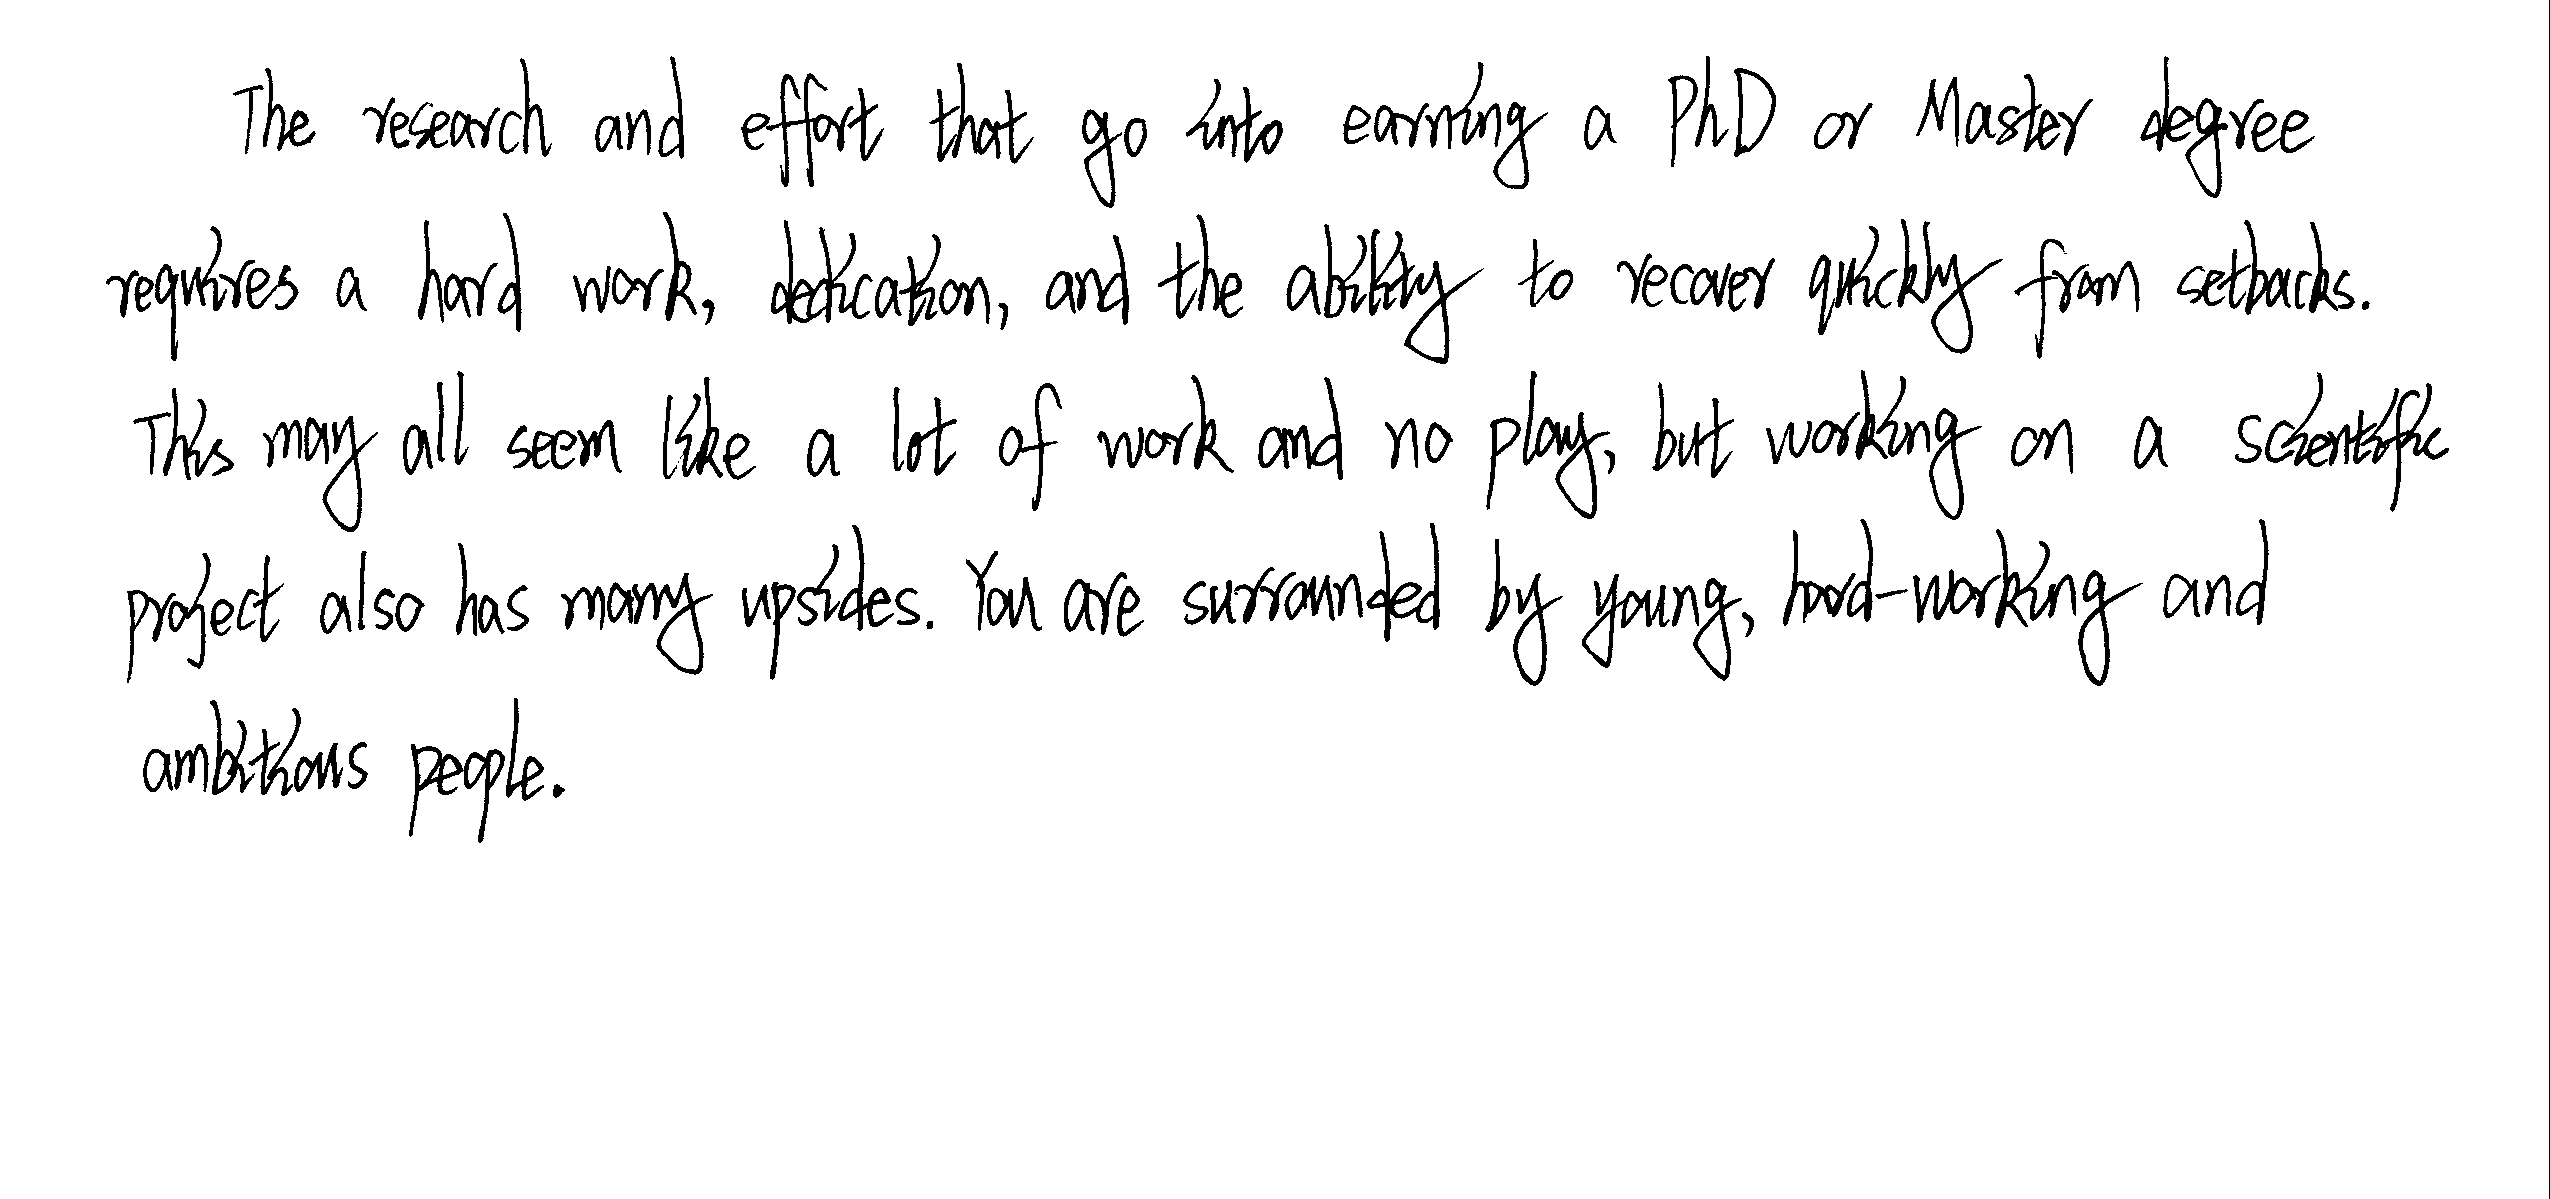 The research and effort that go into earning a PhD or Master degree
requires a hard work, dedication, and the ability to recover quickly from setbacks.
This may all seem like a lot of work and no play, but working on a scientific
project also has many upsides. You are surrounded by young, hard-working and
ambitious people.